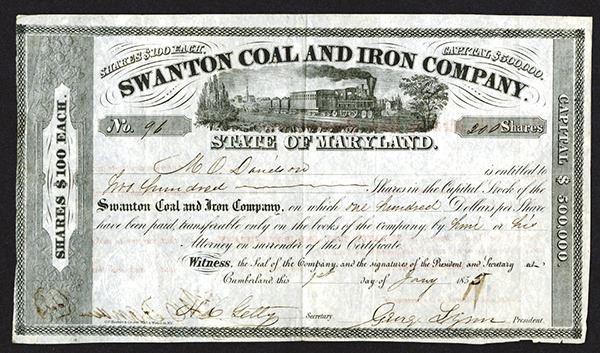 SHARES $100 EACH.
CAPITAL $500,000.
SWANTON COAL AND IRON COMPANY.
No. 96
200 Shares
STATE OF MARYLAND.
SHARES $100 EACH.
CAPITAL $500,000.
M. O. Davidson is entitled to
Two Hundred Shares in the Capital Stock of the
Swanton Coal and Iron Company, on which one hundred Dollars per Share
have been paid, transferable only on the books of the company by him or his
Attorney on surrender of this Certificate.
Witness, the Seal of the Company, and the signatures of the President and Secretary at
Cumberland this day of Jany 1855
Secretary. Geo. Lynn President.